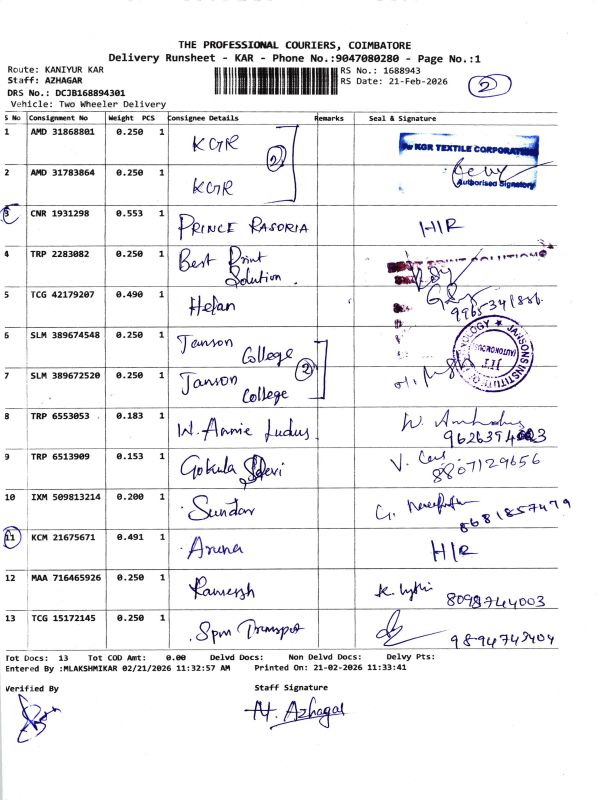 THE PROFESSIONAL COURIERS, COIMBATORE
Delivery Runsheet - KAR - Phone No.:9047080280 - Page No.:1
Route: KANIYUR KAR
RS No.: 1688943
Staff: AZHAGAR
RS Date: 21-Feb-2026
2
DRS No.: DCJB168894301
Vehicle: Two Wheeler Delivery
S No Consignment No Weight PCS Consignee Details Remarks Seal & Signature
1 AMD 31868801 0.250 1 KGR
2
For KGR TEXTILE CORPORATION
Authorised Signatory
2 AMD 31783864 0.250 1 KGR
3 CNR 1931298 0.553 1 PRINCE RASORIA H/R
4 TRP 2283082 0.250 1 Best Print Solution.
5 TCG 42179207 0.490 1 Hefan
6 SLM 389674548 0.250 1 Janson College
2
7 SLM 389672520 0.250 1 Janson College
8 TRP 6553053 0.183 1 W. Annie Ludus
9 TRP 6513909 0.153 1 Gokula Devi 8807129656
10 IXM 509813214 0.200 1 Sundar 8681857479
11 KCM 21675671 0.491 1 Aruna H/R
12 MAA 716465926 0.250 1 Ramersh 8098744003
13 TCG 15172145 0.250 1 Spm Transpot 9894743404
Tot Docs: 13 Tot COD Amt: 0.00 Delvd Docs: Non Delvd Docs: Delvy Pts:
Entered By :MLAKSHMIKAR 02/21/2026 11:32:57 AM Printed On: 21-02-2026 11:33:41
Verified By Staff Signature
N. Azhagar